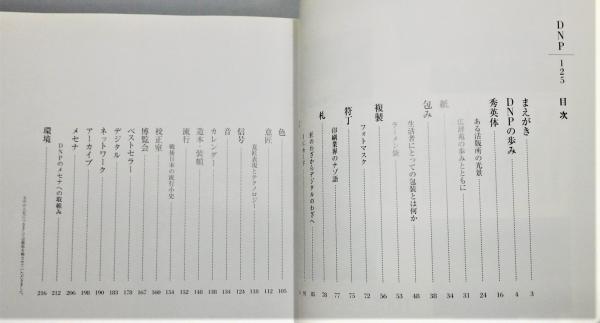 DNP 125 目次
まえがき 3
DNPの歩み 4
秀英体 16
ある活版所の光景 24
広辞苑の歩みとともに 31
紙 34
包み 38
生活者にとっての包装とは何か 48
ラーメン袋 53
複製 56
フォトマスク 72
符丁 75
印刷業界のナゾ語 77
札 78
匠のわざからデジタルのわざへ 85
色 105
意匠 112
意匠表現とテクノロジー 118
信号 124
音 134
カレンダー 138
造本・装幀 148
流行 152
戦後日本の流行小史 154
校正室 160
博覧会 167
ベストセラー 178
デジタル 183
ネットワーク 190
アーカイブ 198
メセナ 206
DNPのメセナへの取組み 212
環境 216